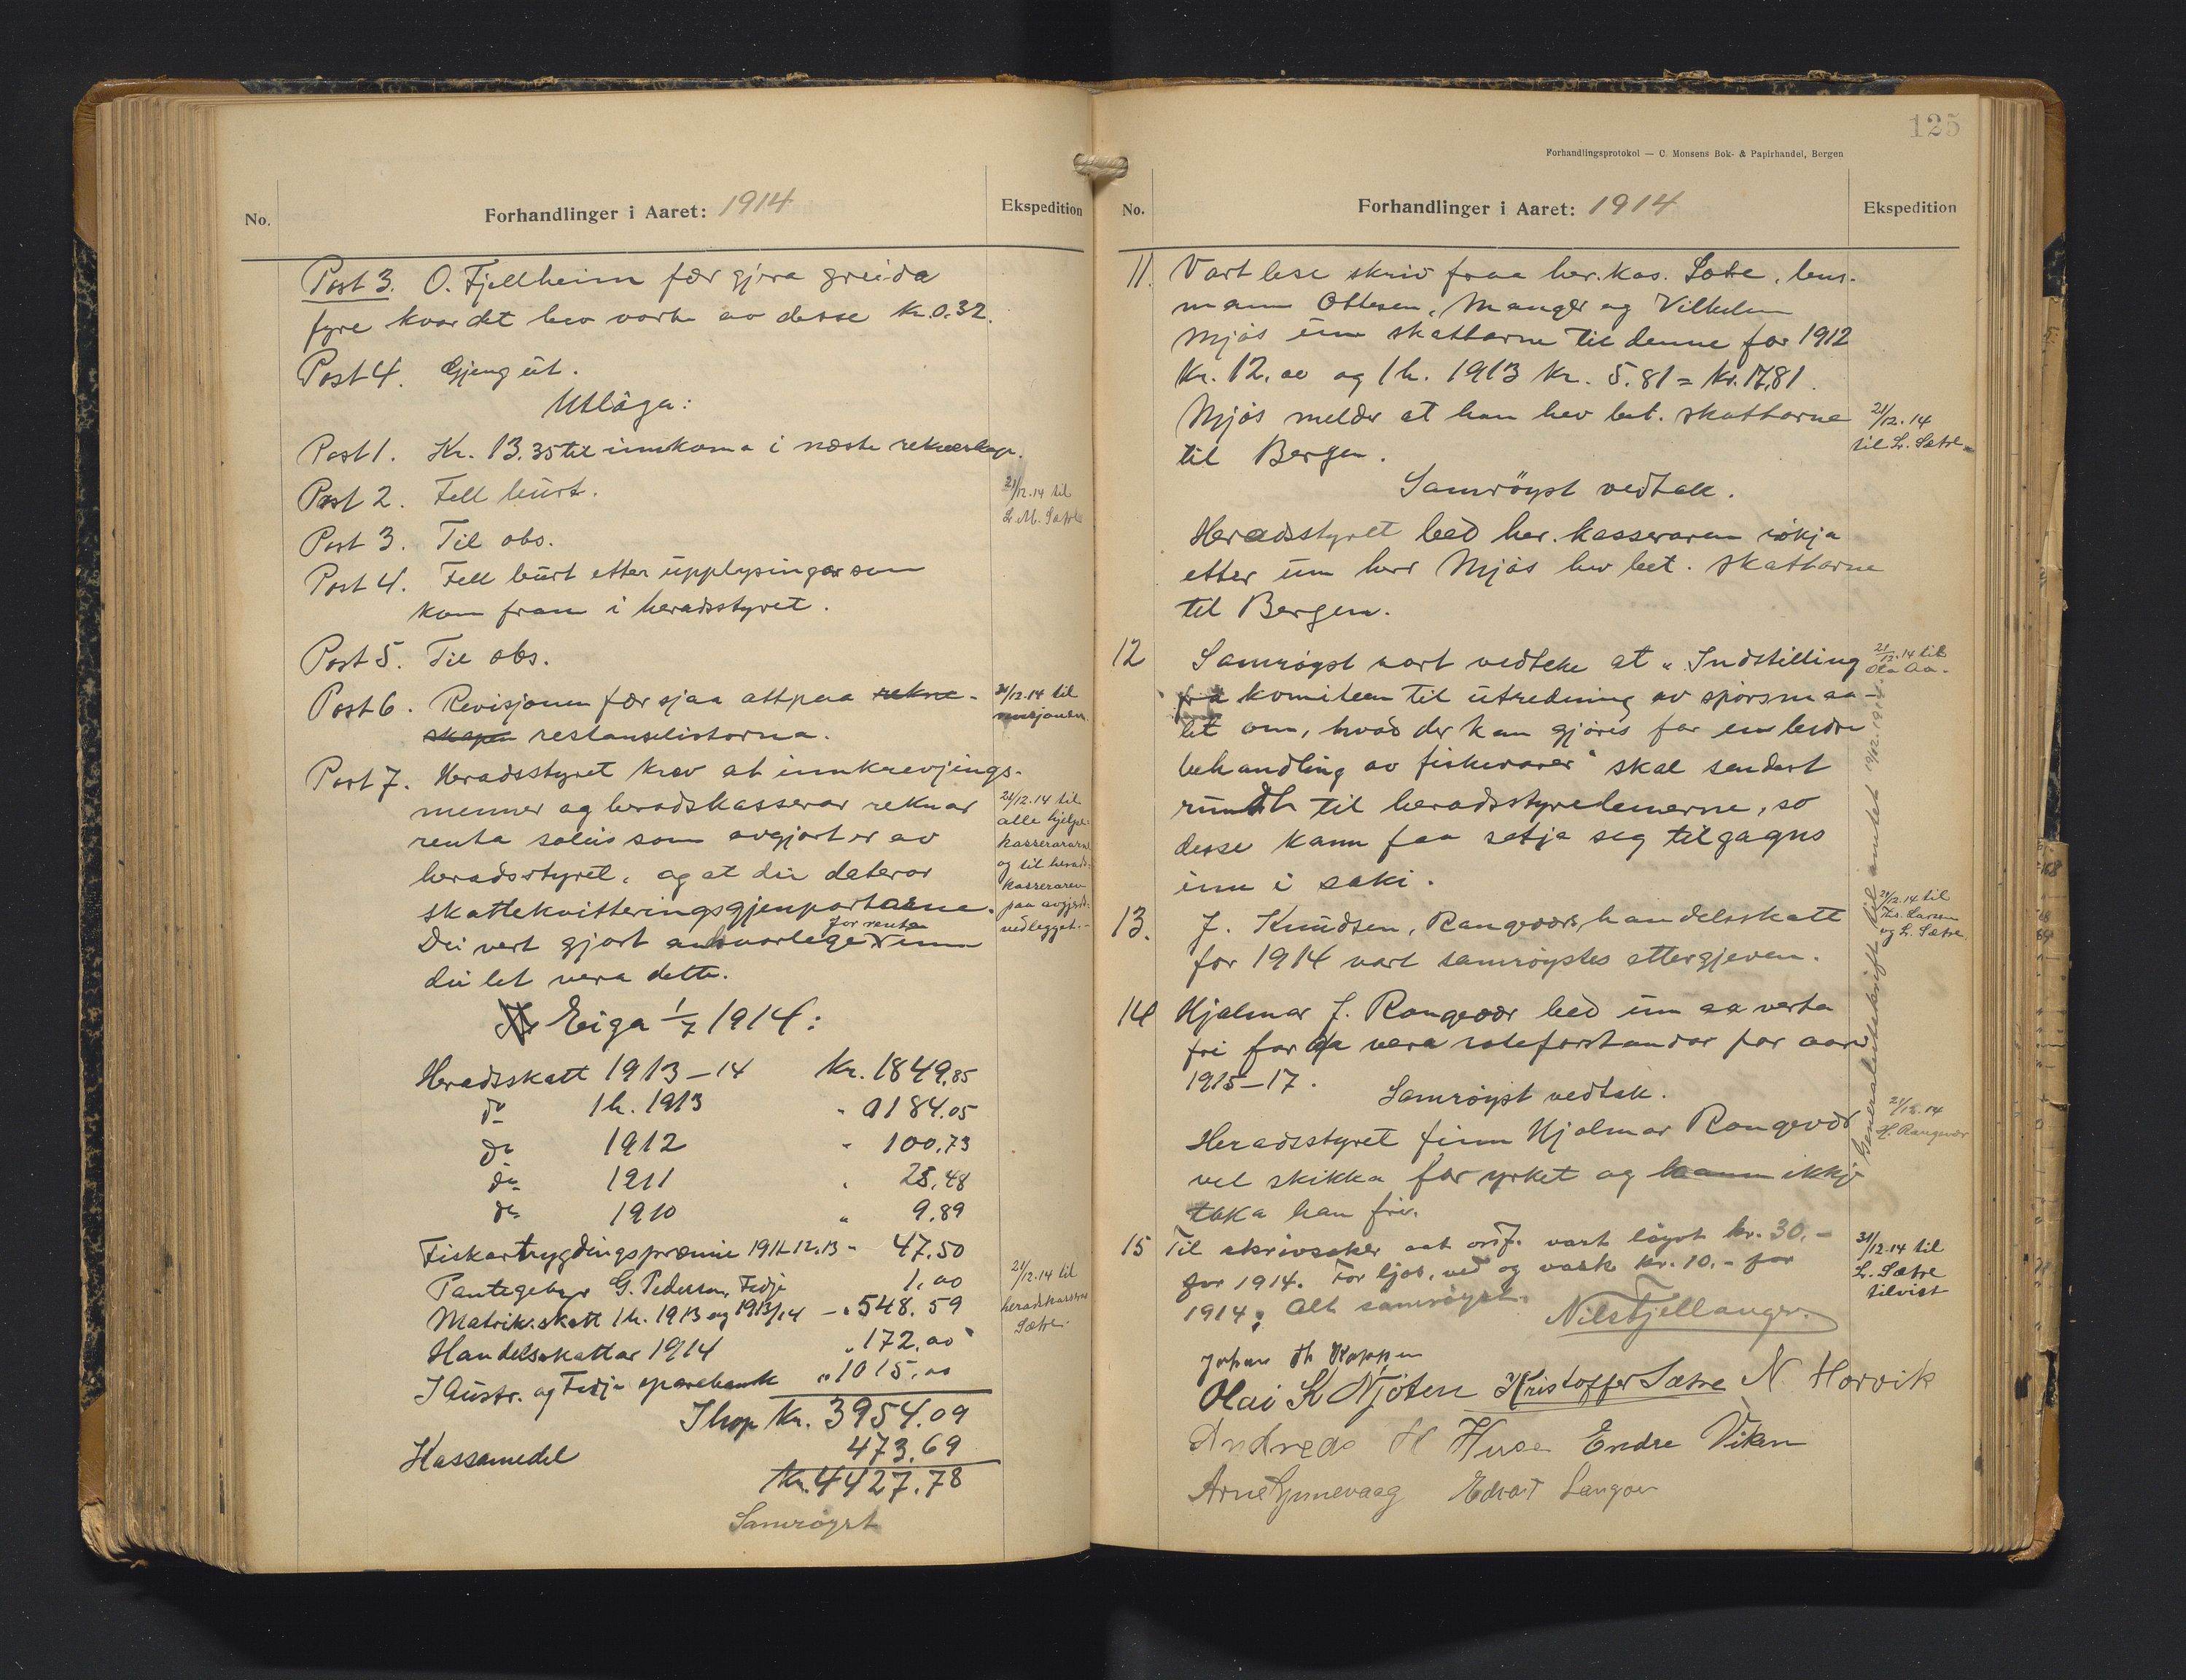 No.
Forhandlinger i Aaret: 1914
Ekspedition
Post 3. O. Fjellheim fær gjera greida
fyre kvar det hev vorte av desse Kr. 0.32.
Post 4. Gjeng út.
Utlåga:
Post 1. Kr. 13.35 til innkoma i næste rekneskap.
Post 2. Fell burt.
21/12.14 til
L. M. Sætre
Post 3. Til obs.
Post 4. Fell burt etter upplysingar som
kom fram i heradsstyret.
Post 5. Til obs.
Post 6. Revisjonen fær sjaa attpaa rekne-
skapen restanselistorna.
21/12.14 til
revisjonen
Post 7. Heradsstyret krev at innkrevjings-
menner og heradskasserar reknar
renta soleis som avgjort er av
heradsstyret, og at dei daterar
skattekvitteringsgjenpartarne.
for renta
Dei vert gjort ansvarlege um
dei let vera dette.
21/12.14 til
alle hjelpe-
kasserararne
og til herads-
kasseraren
paa avgjerds-
vedlegget.-
Eiga 1/7 1914:
Heradsskatt 1913-14 Kr. 1849,85
do 1h. 1913 " 0184.05
do 1912 " 100,73
do 1911 " 25,48
do 1910 " 9,89
Fiskartrygdingspræmie 1911-12,13 - 47,50
Pantegebyr G. Pederson, Fedje 1,00
Matrik.skatt 1h. 1913 og 1913/14 - " 548.59
Handelsskattar 1914 " 172,00
I Austr. og Fedje sparebank " 1015,00
Ihop Kr. 3954.09
Kassamedel 473.69
Kr. 4427.78
Samrøyst
21/12.14 til
heradskasserar
Sætre.
125
Forhandlingsprotokol — C. Monsens Bok- & Papirhandel, Bergen
No.
Forhandlinger i Aaret: 1914
Ekspedition
11. Vart lese skriv fraa her.kas. Sætre, lens-
mann Ottesen, Manger og Vilhelm
Mjøs um skattarne til denne for 1912
Kr. 12.00 og 1h. 1913 Kr. 5.81 = Kr. 17,81.
Mjøs melder at han hev bet. skattarne
til Bergen.
21/12.14
til L. Sætre
Samrøyst vedtak.
Heradsstyret bed her. kasseraren søkja
etter um herr Mjøs hev bet. skattarne
til Bergen.
12 Samrøyst vart vedteke at "Indstilling
fra komiteen til utredning av spørsmaa-
let om, hvad der kan gjøres for en bedre
behandling av fiskevarer" skal sendast
rundt til heradsstyrelemerne, so
desse kann faa setja seg tilgagns
inn i saki.
21/12.14 til
Ola Aa.
Generalutskrift til amtet 19/12.1914.
13. J. Knudsen, Rangevær, handelsskatt
for 1914 vart samrøystes ettergjeven.
21/12.14 til
Th. Larsen
og L. Sætre.
14 Hjalmar J. Rangevær bed um aa verta
fri for aa vera roteforstandar for aari
1915-17.
Samrøyst vedtak.
Heradsstyret finn Hjalmar Rangevær
vel skikka for yrket og kann ikkje
taka han fri.
21/12.14
H. Rangevær
15 Til skrivsaker aat ordf. vart løyvt kr. 30,-
for 1914. For ljos, ved og vask kr. 10,- for
1914. Alt samrøyst.
31/12.14 til
L. Sætre
tilvist
Nils Fjellanger.
Johan Th Koppen
Olai K Njøten Kristoffer Sætre N. Horvik
Andreas H Huse Endre Viken
Arne Synnevaag Edvard Langøen